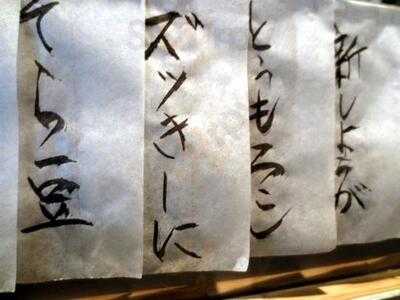 新しょうが
とうもろこし
ズッきーに
そら豆